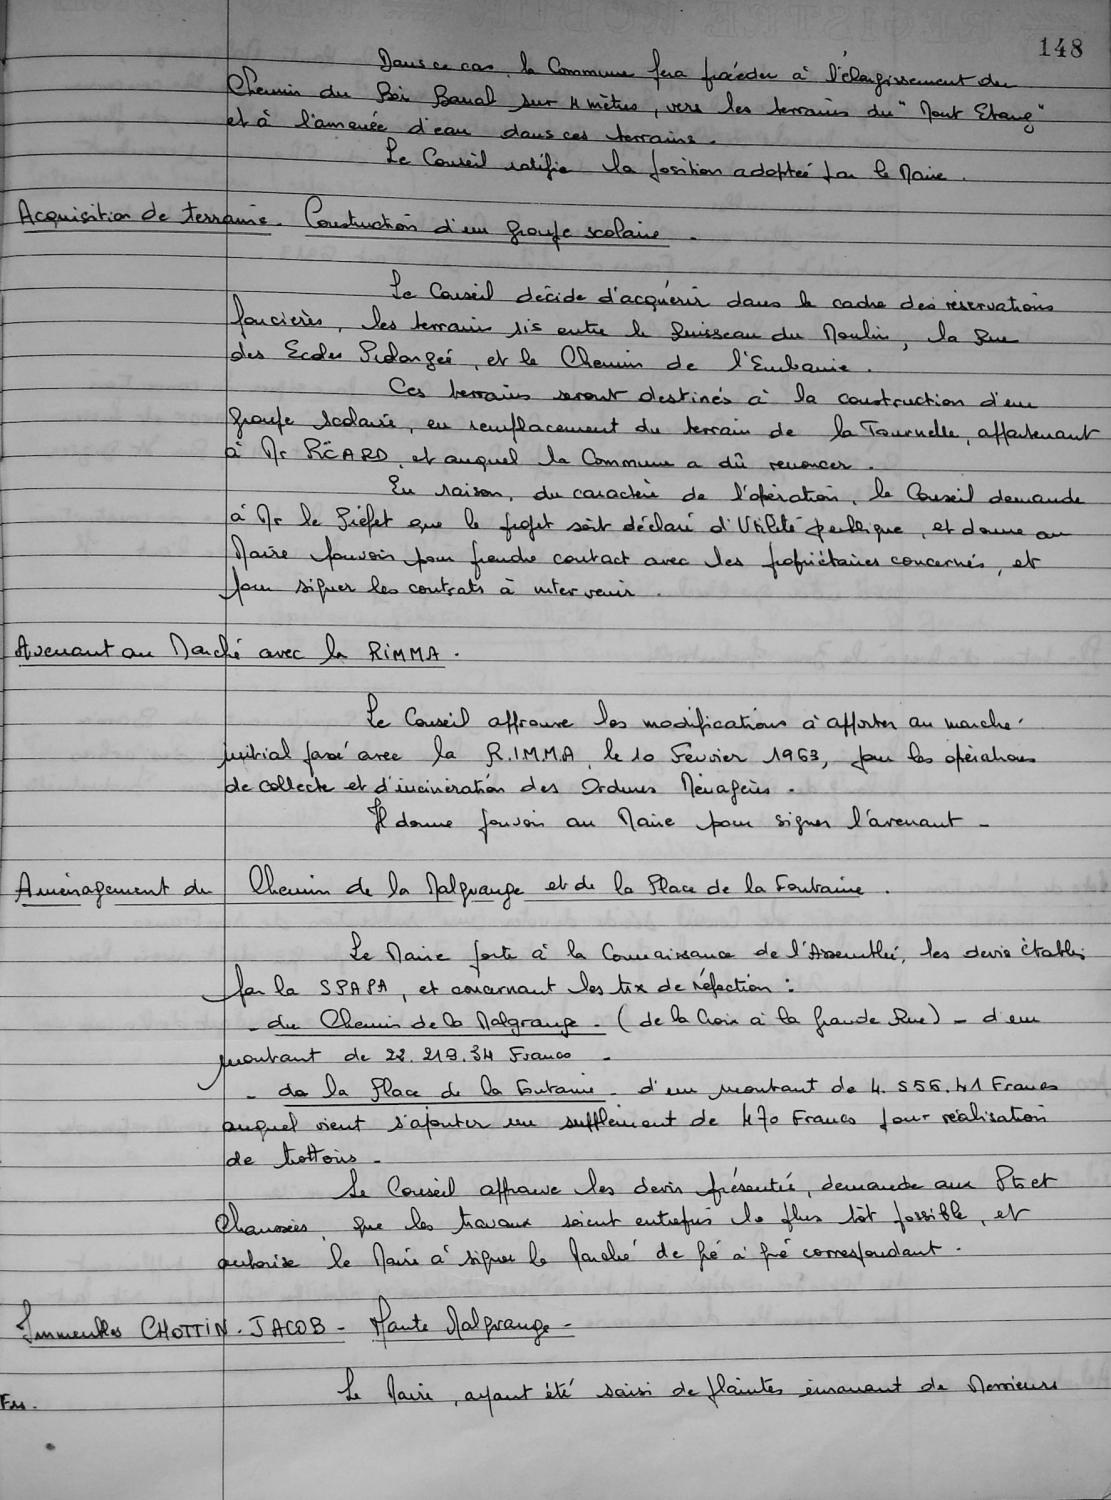 148
Dans ce cas, la Commune fera procéder à l'élargissement du
Chemin du Bois Banal sur 4 mètres, vers les terrains du "Mont Etang"
et à l'amenée d'eau dans ces terrains.
Le Conseil ratifie la position adoptée par le Maire.
Acquisition de terrains. Construction d'un groupe scolaire.
Le Conseil décide d'acquérir dans le cadre des réservations
foncières, les terrains sis entre le Ruisseau du Moulin, la Rue
des Ecoles Prolongée, et le Chemin de l'Embanie.
Ces terrains seront destinés à la construction d'un
groupe scolaire, en remplacement du terrain de la Tournelle, appartenant
à Mr RÉARD, et auquel la Commune a dû renoncer.
En raison, du caractère de l'opération, le Conseil demande
à Mr le Préfet que le projet soit déclaré d'Utilité publique, et donne au
Maire pouvoir pour prendre contact avec les propriétaires concernés, et
pour signer les contrats à intervenir.
Avenant au Marché avec la RIMMA.
Le Conseil approuve les modifications à apporter au marché
initial passé avec la R.I.M.M.A, le 10 Février 1963, pour les opérations
de collecte et d'incinération des Ordures Ménagères.
Il donne pouvoir au Maire pour signer l'avenant -
Aménagement du Chemin de la Malgrange et de la Place de la Fontaine.
Le Maire porte à la Connaissance de l'Assemblée, les devis établis
par la SPAPA, et concernant les tvx de réfection :
- du Chemin de la Malgrange - (de la Croix à la Grande Rue) - d'un
montant de 22.219.34 Francs -
- de la Place de la Fontaine - d'un montant de 4.556.41 Francs
auquel vient s'ajouter un supplément de 470 Francs pour réalisation
de trottoirs -
Le Conseil approuve les devis présentés, demande aux Pts et
Chaussées, que les travaux soient entrepris le plus tôt possible, et
autorise le Maire à signer le Marché de gré à gré correspondant.
Immeubles CHOTTIN - JACOB - Haute Malgrange -
Le Maire, ayant été saisi de plaintes émanant de Messieurs